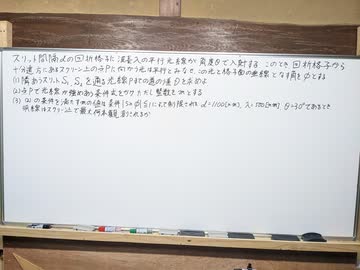 スリット間隔dの回折格子に波長λの平行光線が角度θで入射する このとき、回折格子から
十分遠方にあるスクリーン上の点Pに向かう光は平行とみなせ、この光と格子面の垂線となす角をφとする
(1) 隣あうスリットS₁ S₂を通る光線Pまでの差の道を求めよ
(2) 点Pで光線が強めあう条件式をかけ ただし整数をmとする
(3) (2)の条件を満たすmの値は条件|sinφ|≦1によって制限される d=1100[nm], λ=500[nm], θ=30°であるとき
明線はスクリーン上で最大何本観測されるか